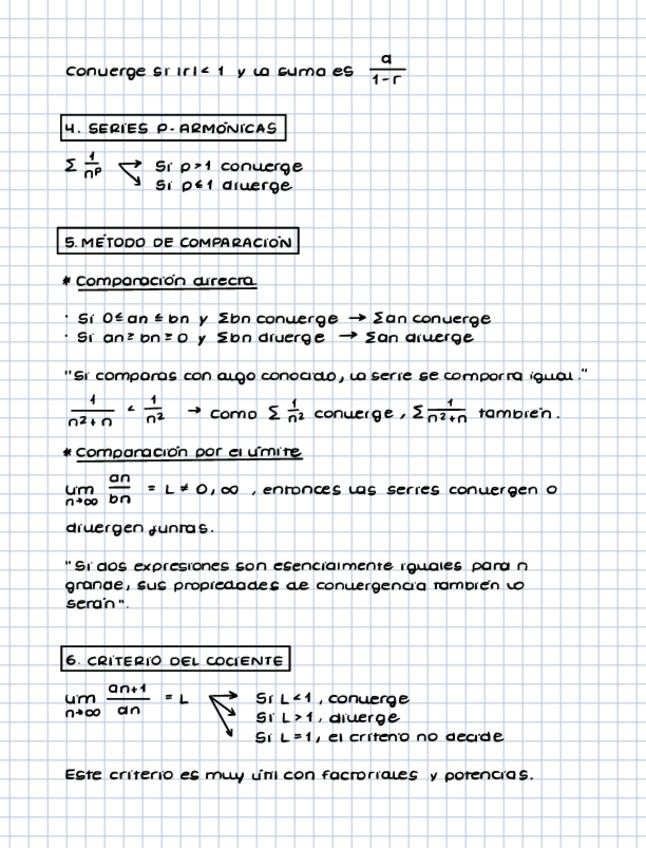 Converge si |r| < 1 y la suma es a/(1-r)
4. SERIES P-ARMÓNICAS
Σ 1/n^p → Si p>1 converge
↘ Si p≤1 diverge
5. MÉTODO DE COMPARACIÓN
* Comparación directa
· Si 0≤an≤bn y Σbn converge → Σan converge
· Si an≥bn≥0 y Σbn diverge → Σan diverge
"Si comparas con algo conocido, la serie se comporta igual."
1/(n²+n) < 1/n² → como Σ 1/n² converge, Σ 1/(n²+n) también.
* Comparación por el límite
lim n→∞ an/bn = L ≠ 0, ∞, entonces las series convergen o
divergen juntas.
"Si dos expresiones son esencialmente iguales para n
grande, sus propiedades de convergencia también lo
serán".
6. CRITERIO DEL COCIENTE
lim n→∞ an+1/an = L → Si L<1, converge
↘ Si L>1, diverge
↘ Si L=1, el criterio no decide
Este criterio es muy útil con factoriales y potencias.